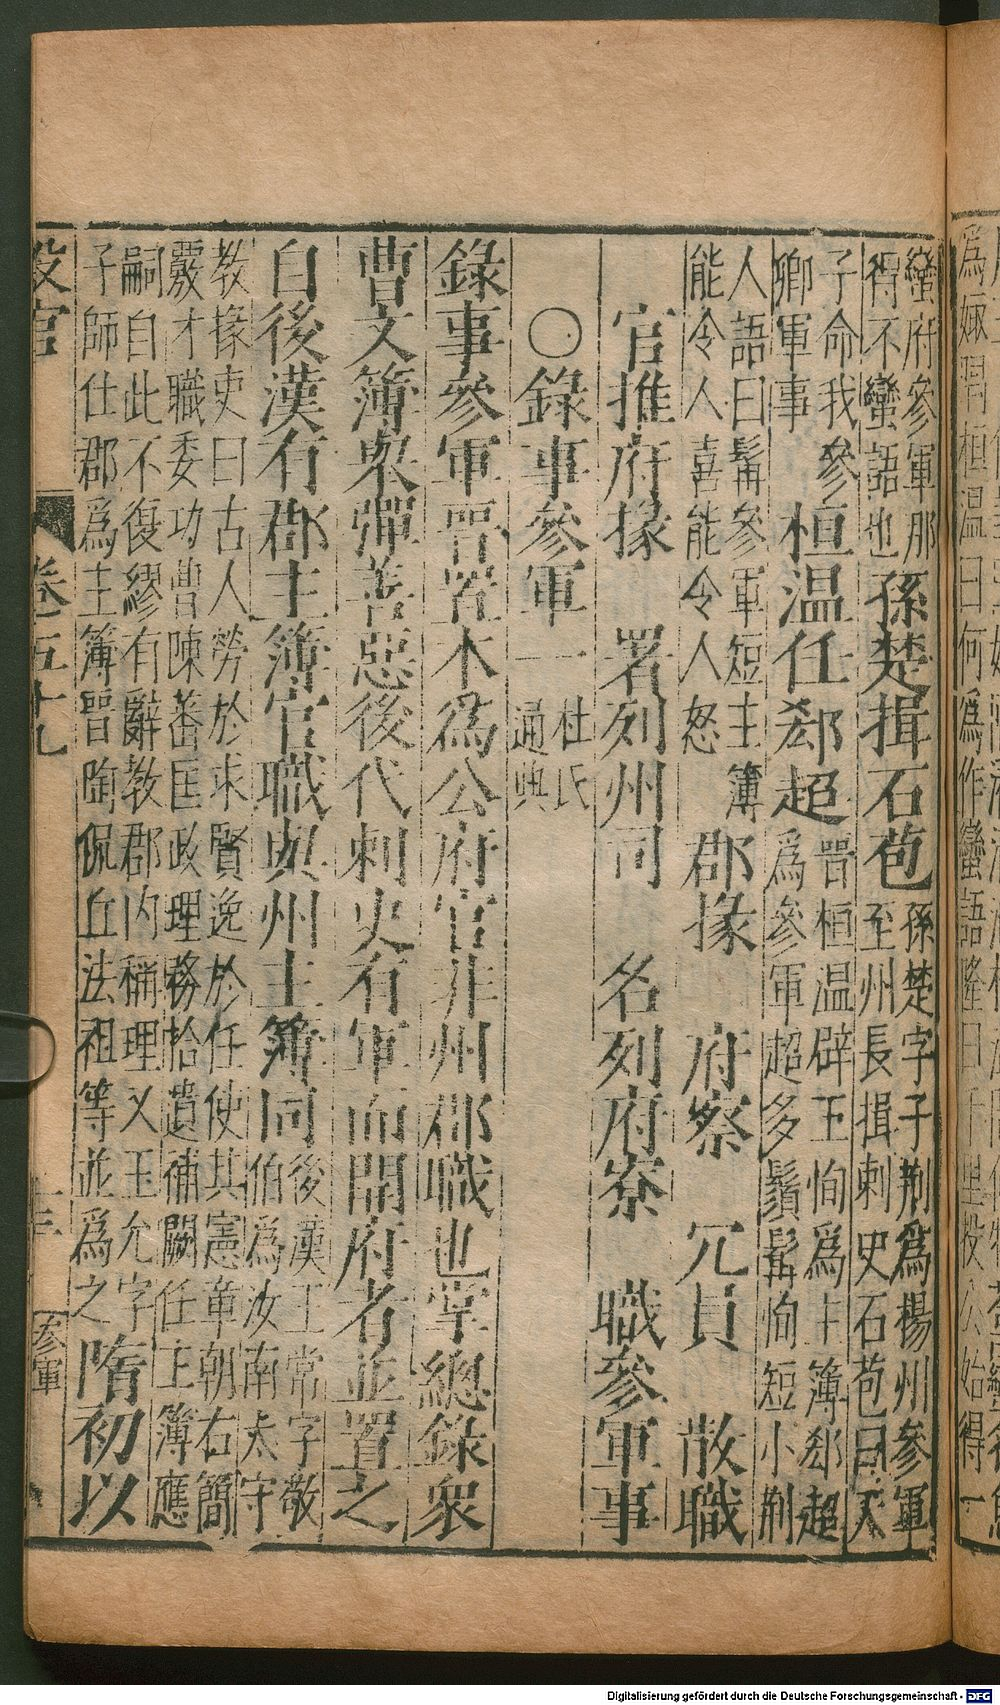 蠻府參軍那
得不蠻語也
孫楚揖石苞
孫楚字子荆爲揚州參軍
至州長揖刺史石苞曰天
子命我參
卿軍事
桓温任郄超
晋桓温辟王恂爲主簿郄超
爲參軍超多鬚髯恂短小荆
人語曰髯參軍短主簿
能令人喜能令人怒
郡掾 府察 冗員 散職
官推府掾 署列州司 名列府寮 職參軍事
○錄事參軍一
杜氏
通典
錄事參軍晋置本爲公府官非州郡職也掌總錄衆
曹文簿舉彈善惡後代刺史有軍而開府者並置之
自後漢有郡主簿官職與州主簿同
後漢王常字敬
伯爲汝南太守
教掾吏曰古人勞於求賢逸於任使其憲章朝右簡
覈才職委功曹陳蕃匡政理務拾遺補闕任主簿應
嗣自此不復繆有辭教郡内稱理又王允字
子師仕郡爲主簿晋陶侃丘法祖等並爲之
隋初以
設官
卷五十九
十三
參軍
Digitalisierung gefördert durch die Deutsche Forschungsgemeinschaft - DFG